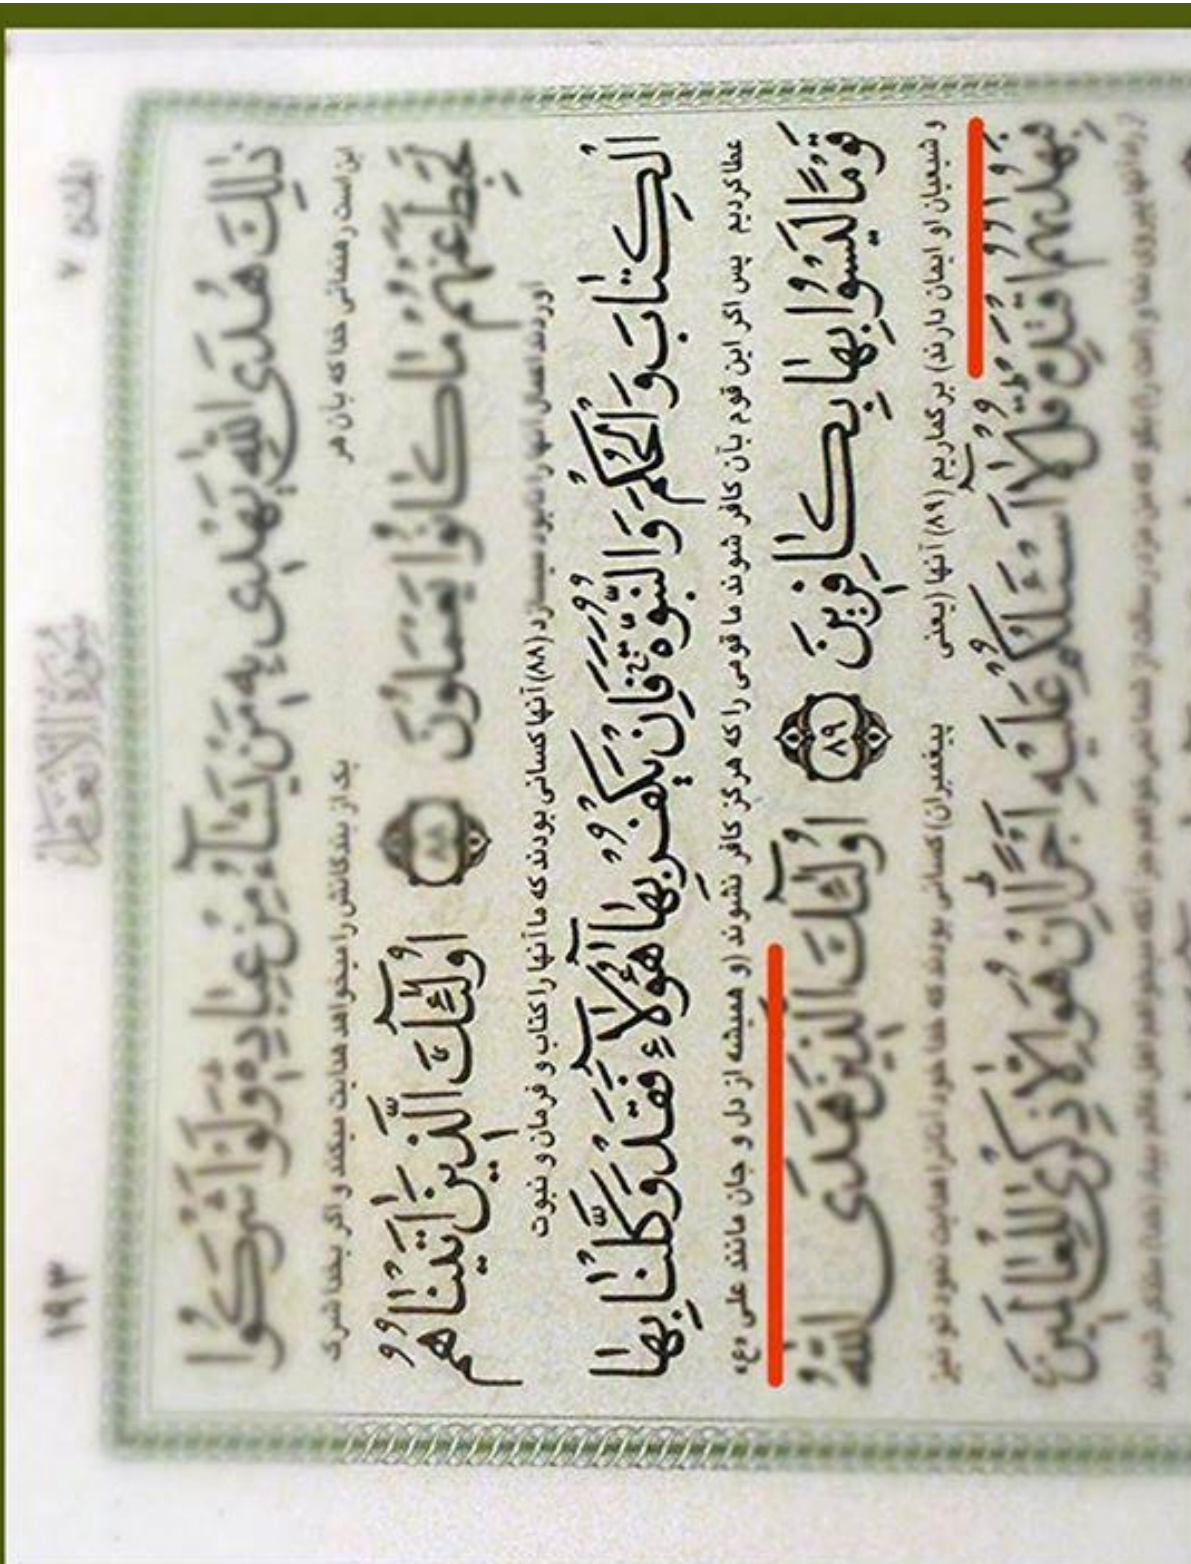 الجزء ۷ سُورَةُ الْاَنْعَامِ ۱۹۳
ذٰلِكَ هُدَى اللّٰهِ يَهْدِى بِهِ مَنْ يَشَآءُ مِنْ عِبَادِهِ وَلَوْ اَشْرَكُوا
این است رهنمائی خدا که بآن هر یک از بندگانش را میخواهد هدایت میکند و اگر بخدا شرک
لَحَبِطَ عَنْهُمْ مَاكَانُوا يَعْمَلُونَ ۸۸ اُولٰٓئِكَ الَّذِينَ اٰتَيْنَاهُمُ
آوردند اعمال آنها را نابود میسازد (۸۸) آنها کسانی بودند که ما آنها را کتاب و فرمان و نبوت
الْكِتَابَ وَالْحُكْمَ وَالنُّبُوَّةَ فَاِنْ يَكْفُرْ بِهَا هٰٓؤُلَآءِ فَقَدْ وَكَّلْنَا بِهَا
عطا کردیم پس اگر این قوم بآن کافر شوند ما قومی را که هرگز کافر نشوند (و همیشه از دل و جان مانند علی «ع»
قَوْمًا لَيْسُوا بِهَا بِكَافِرِينَ ۸۹ اُولٰٓئِكَ الَّذِينَ هَدَى اللّٰهُ
و شیعیان او ایمان دارند) برگماریم (۸۹) آنها (یعنی پیغمبران) کسانی بودند که خدا خود آنانرا هدایت نمود تو نیز
فَبِهُدٰيهُمُ اقْتَدِهْ قُلْ لَآ اَسْئَلُكُمْ عَلَيْهِ اَجْرًا اِنْ هُوَ اِلَّا ذِكْرٰى لِلْعَالَمِينَ
از راه آنها پیروی نما و امت را بگو که من مزد رسالت از شما نمی‌خواهم جز آنکه میخواهم اهل عالم بیاد (خدا) متذکر شوند